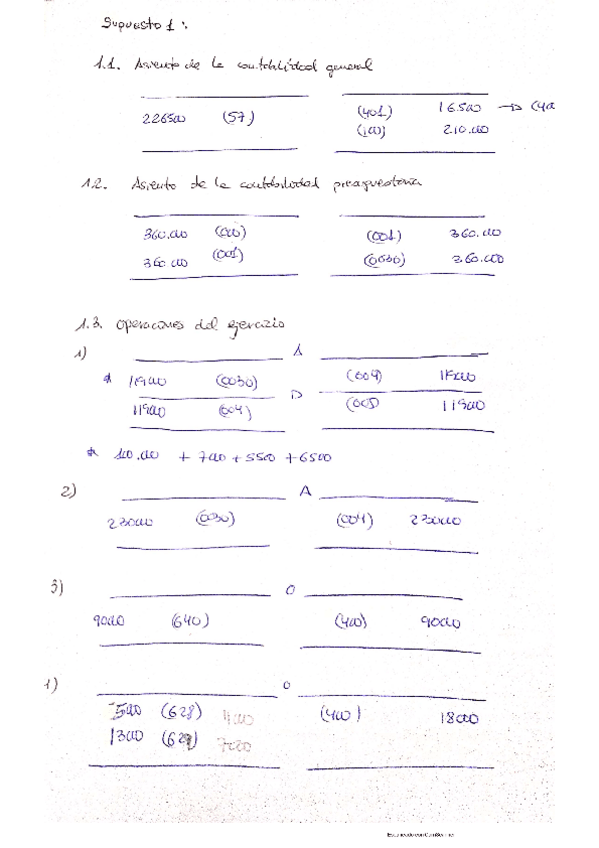 Supuesto 1:
1.1. Asiento de la contabilidad general
226500 (57) (401) 16.500 → (400
(100) 210.000
1.2. Asiento de la contabilidad presupuestaria
360.000 (000) (001) 360.000
360.000 (001) (0030) 360.000
1.3. Operaciones del ejercicio
1) A
* 119000 (0030) (004) 119000
D
119000 (004) (005) 119000
* 100.000 + 7000 + 5500 + 6500
2) A
230000 (0030) (004) 230000
3) O
90000 (640) (400) 90000
1) O
5000 (628) (400) 18000
13000 (629)
Escaneado con CamScanner